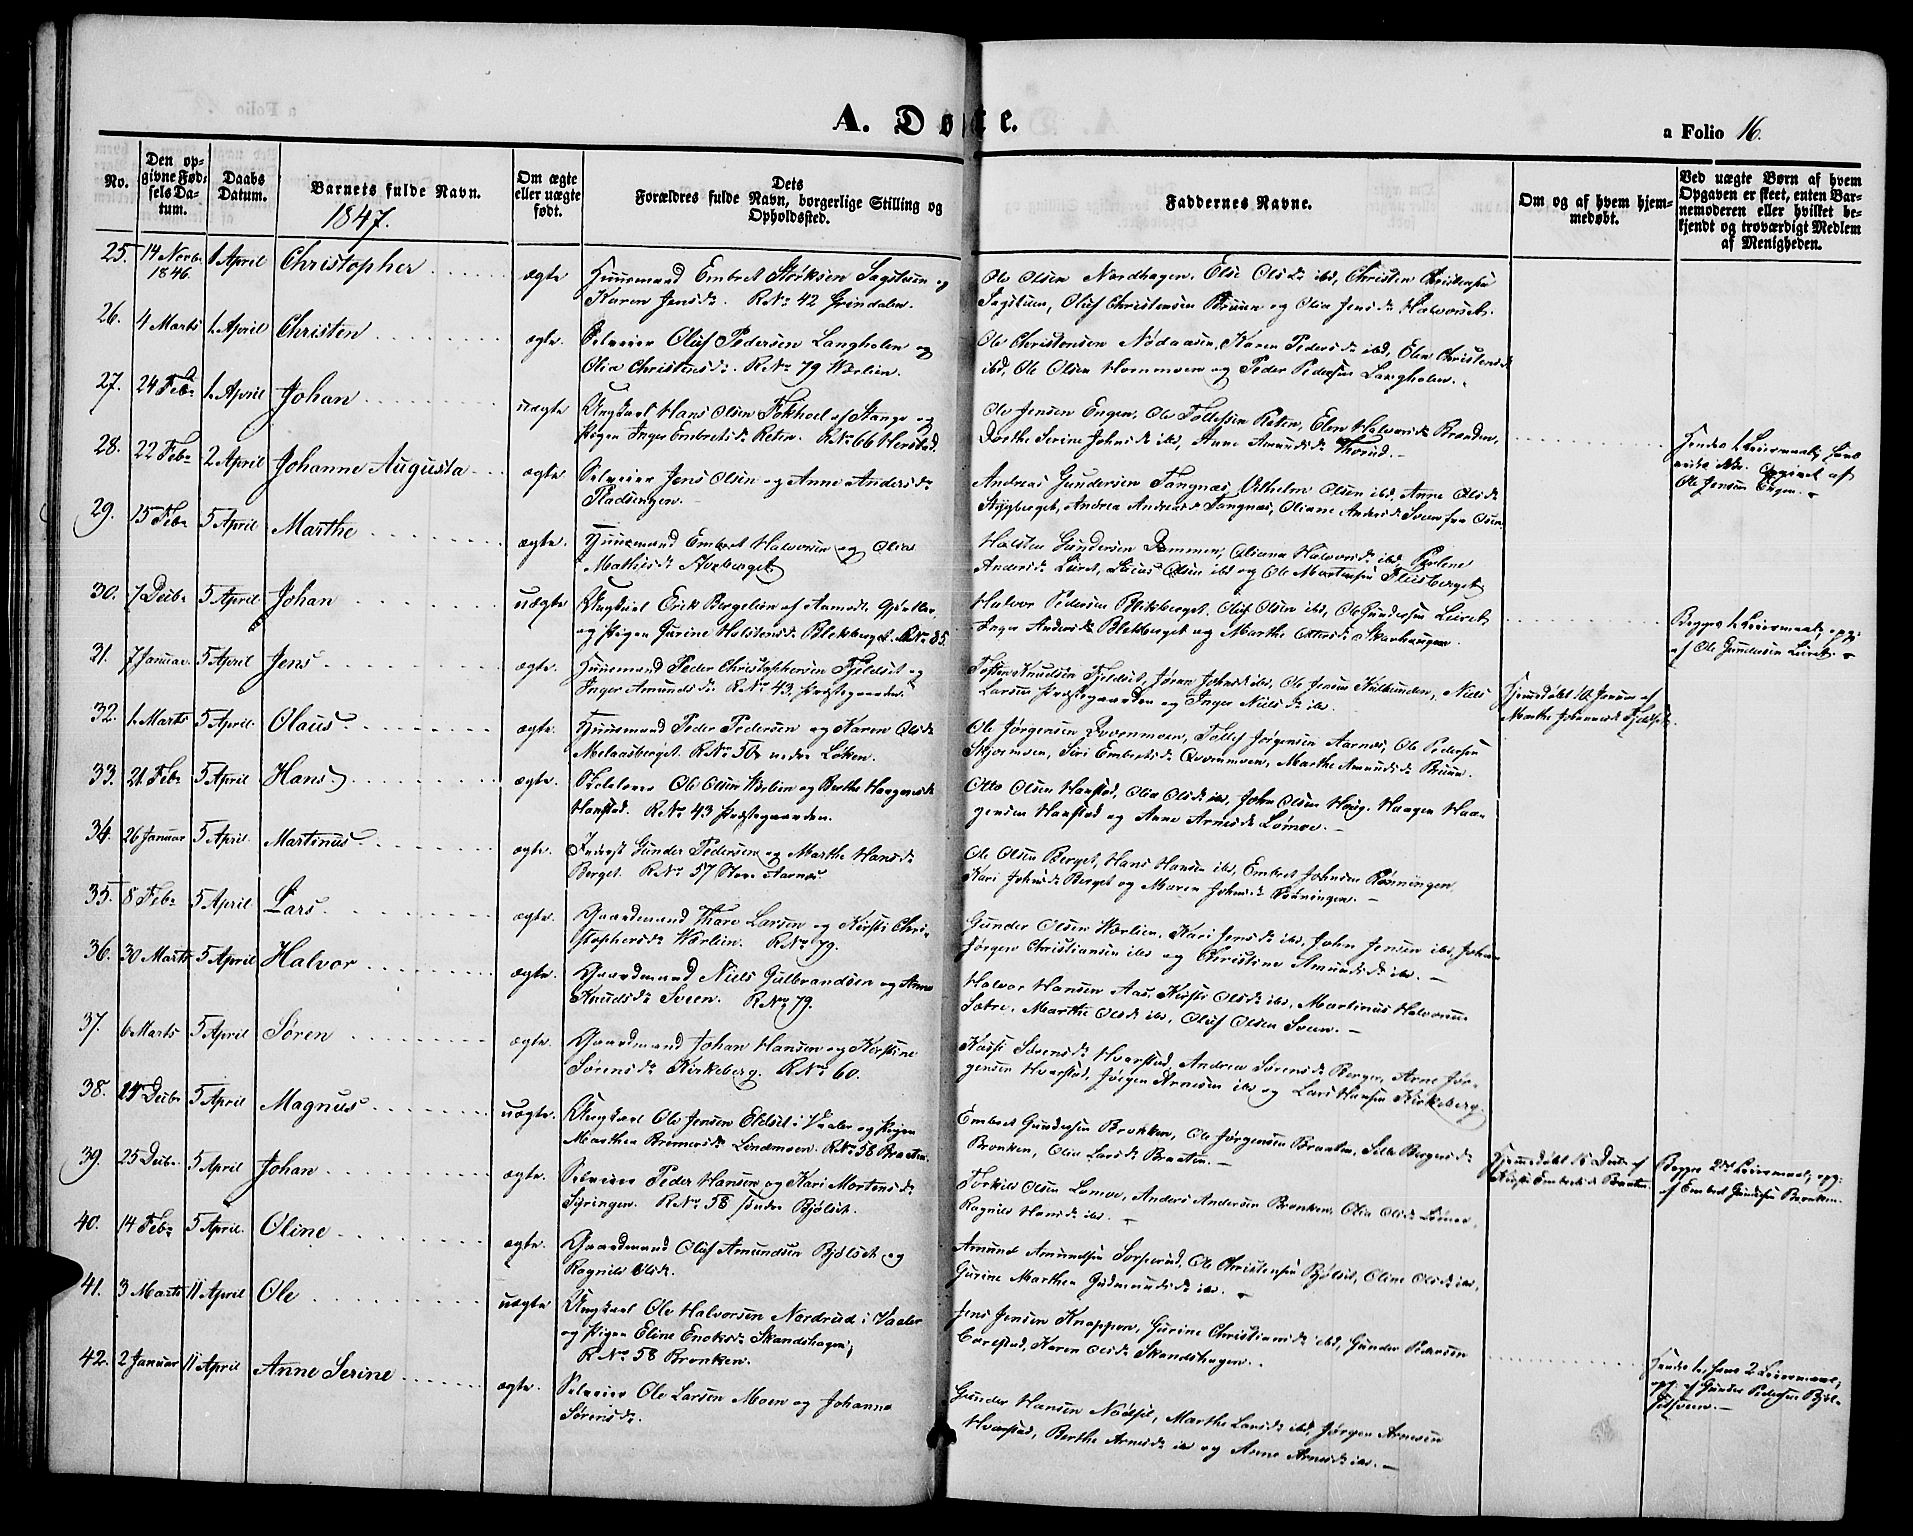 A. Døbte.
a Folio 16.
No.
Den opgivne Fødsels Datum.
Daabs Datum.
Barnets fulde Navn.
1847.
Om ægte eller uægte født.
Dets Forældres fulde Navn, borgerlige Stilling og Opholdssted.
Faddernes Navne.
Om og af hvem hjemmedøbt.
Ved uægte Børn af hvem Opgaven er skeet, enten Barnemoderen eller hvilket bekjendt og troværdigt Medlem af Menigheden.
25. 14 Novb. 1846. 1 April Christopher ægte Huusmand Embret Størksen Sagstuen og
Karen Jensd: RNo 42 Grindalen.
Ole Olsen Nordhagen, Else Olsd: ibd, Christen Christensen
Sagstuen, Oluf Christensen Bruun og Olia Jensd: Halvorset.
26. 4 Marts 1. April Christen ægte. Selveier Oluf Pedersen Langholen og
Olia Christensd: RNo 79 Wærlien.
Ole Christensen Nødaasen, Karen Pedersd: ibd, Elen Christensd:
ibd, Ole Olsen Hommoen og Peder Pedersen Langholen.
27. 24 Feb: 1. April Johan uægte Ungkarl Hans Olsen Fokhoel af Stange og
Pigen Inger Embretsd: Reten. RNo 66 Henstad.
Ole Jensen Engen, Ole Tollefsen Reten, Elen Halvorsd: Brænden,
Dorthe Serine Johnsd: ibd, Anne Amundsd: Thorud.
Hendes 1. Leiermaal, hans
Opgivet af
Ole Jensen Engen.
28. 22 Feb: 2 April Johanne Augusta ægte Selveier Jens Olsen og Anne Andersd:
Pladsengen.
Andreas Gundersen Tangnæs, Vilhelm Olsen ibd, Anne Olsd:
Stygberget, Andrea Andreasd: Tangnæs, Oliane Andersd: Sveen fra Osen
29. 15 Feb: 5 April Marthe ægte. Huusmand Embret Halvorsen og Olia
Mathisd: Averberget.
Halsten Gundersen Dammen, Oliana Halvorsd: ibd, Pauline
Andersd: Leiret, Olsen ibd og Ole Mortensen Flisberget
30. 7 Decb: 5 April Johan uægte Ungkarl Erik Bergesen af Aamodt Gjælder,
og Pigen Gurine Halstensd: Blekberget. RNo 85.
Halvor Pedersen Blekberget, Oluf Olsen ibd, Ole Gundersen Leiret
Inger Andersd: Blekberget og Marthe Ottersd: Skavhaugen.
Begges 1. Leiermaal, opg:
af Ole Gundersen Leiret.
31. 7 Januar. 5 April Jens ægte. Huusmand Peder Christophersen Fjeldset og
Inger Amundsd: RNo 43, Præstegaarden.
Tosten Knudsen Fjeldset, Jøran Johnsd: ibd, Ole Jensen Kulbunden, Niels
Larsen Præstegaarden og Inger Nielsd: ibd.
Hjemdøbt 10 Januar af
Marthe Johannesd: Fjeldset.
32. 1. Marts 5 April. Olaus ægte. Huusmand Peder Pedersen og Karen Olsd:
Melaasberget. RNo 50 nedre Løken.
Ole Jørgensen Qvernmoen, Tollef Jørgensen Aarnæs, Ole Pedersen
Skjærmoen, Siri Embretsd: Qvernmoen, Marthe Amundsd: Bruun.
33. 21 Feb: 5 April Hans ægte. Ole Olsen Wærlien og Berthe Haagensd:
Hanstad. RNo 43 Præstegaarden.
Otto Olsen Hanstad, Olia Olsd: ibd, John Olsen Haug, Haagen Haa-
gensen Hanstad og Anne Arnesd: Lømoe.
34. 26 Januar 5 April. Martinus ægte. Inderst Gunder Pedersen og Marthe Hansd:
Berget. RNo 57 Store Aarnæs.
Ole Olsen Berget, Hans Hansen ibd, Embret Johnsen Rønningen
Kari Johnsd: Berget og Maren Johnsd: Rønningen.
35. 8 Feb: 5 April Lars ægte. Gaardmand Thore Larsen og Kirsti Chri-
stophersd: Wærlien. RNo 79.
Gunder Olsen Wærlien, Kari Jensd: ibd, John Jensen ibd, Johan
Jørgen Christiansen ibd og Christine Amundsd: ibd.
36. 30 Marts 5 April Halvor ægte. Gaardmand Niels Gulbrandsen og Anne
Knudsd: Sveen. RNo 79.
Halvor Hansen Aas, Kirsti Olsd: ibd, Martinus Halvorsen
Sætre, Marthe Olsd: ibd, Oluf Olsen Sveen.
37. 6 Marts 5 April Søren ægte. Gaardmand Johan Hansen og Kirstine
Sørensd: Kirkeberg. RNo 60.
Kirsti Sørensd: Hvarstad, Andrea Sørensd: Berger, Arne Jør-
gensen Hvarstad, Jørgen Arnesen ibd og Lars Hansen Kirkeberg.
38. Decb: 5 April Magnus uægte. Ungkarl Ole Jensen Eldset i Vaaler og Pigen
Marthea Brynersd: Lindmoen. RNo 58 Braaten.
Embret Gundersen Bronken, Ole Jørgensen Braaten, Sille Bergersd:
Bronken, Olia Larsd: Braaten.
Hjemdøbt 15 Decb: af
Kirsti Embretsd: Braaten.
Begges 2det Leiermaal, opg:
af Embret Gundersen Bronken.
39. 25 Decb: 5 April Johan ægte. Selveier Peder Hansen og Kari Mortensd:
Syringen. RNo 58 søndre Bjølset.
Torkild Olsen Lomoe, Anders Andersen Bronken, Olia Olsd: Lømoe,
Ragnild Hansd: ibd.
40. 14 Feb: 5 April. Oline ægte. Gaardmand Oluf Amundsen Bjølset og
Ragnild Olsd:
Amund Amundsen Sorperud, Ole Christensen Bjølset, Oline Olsd: ibd,
Gurine Marthea Gudmundsd: ibd.
41. 3 Marts 11 April Ole uægte Ungkarl Ole Halvorsen Nordrud i Vaaler
og Pigen Eline Enoksd: Skandshagen,
RNo 58 Bronken.
Jens Jensen Knappen, Gurine Christiansd: ibd, Gunder Pedersen
Karen Olsd: Skandshagen.
Hendes 1., hans 2 Leiermaal,
opg. af Gunder Pedersen Bjøl-
setsveen.
42. 2 Januar 11 April Anne Serine ægte. Selveier Ole Larsen Moen og Johanne
Sørensd:
Gunder Hansen Nødset, Marthe Larsd: ibd, Jørgen Arnesen
Hvarstad, Berthe Arnesd: ibd og Anne Arnesd: ibd.